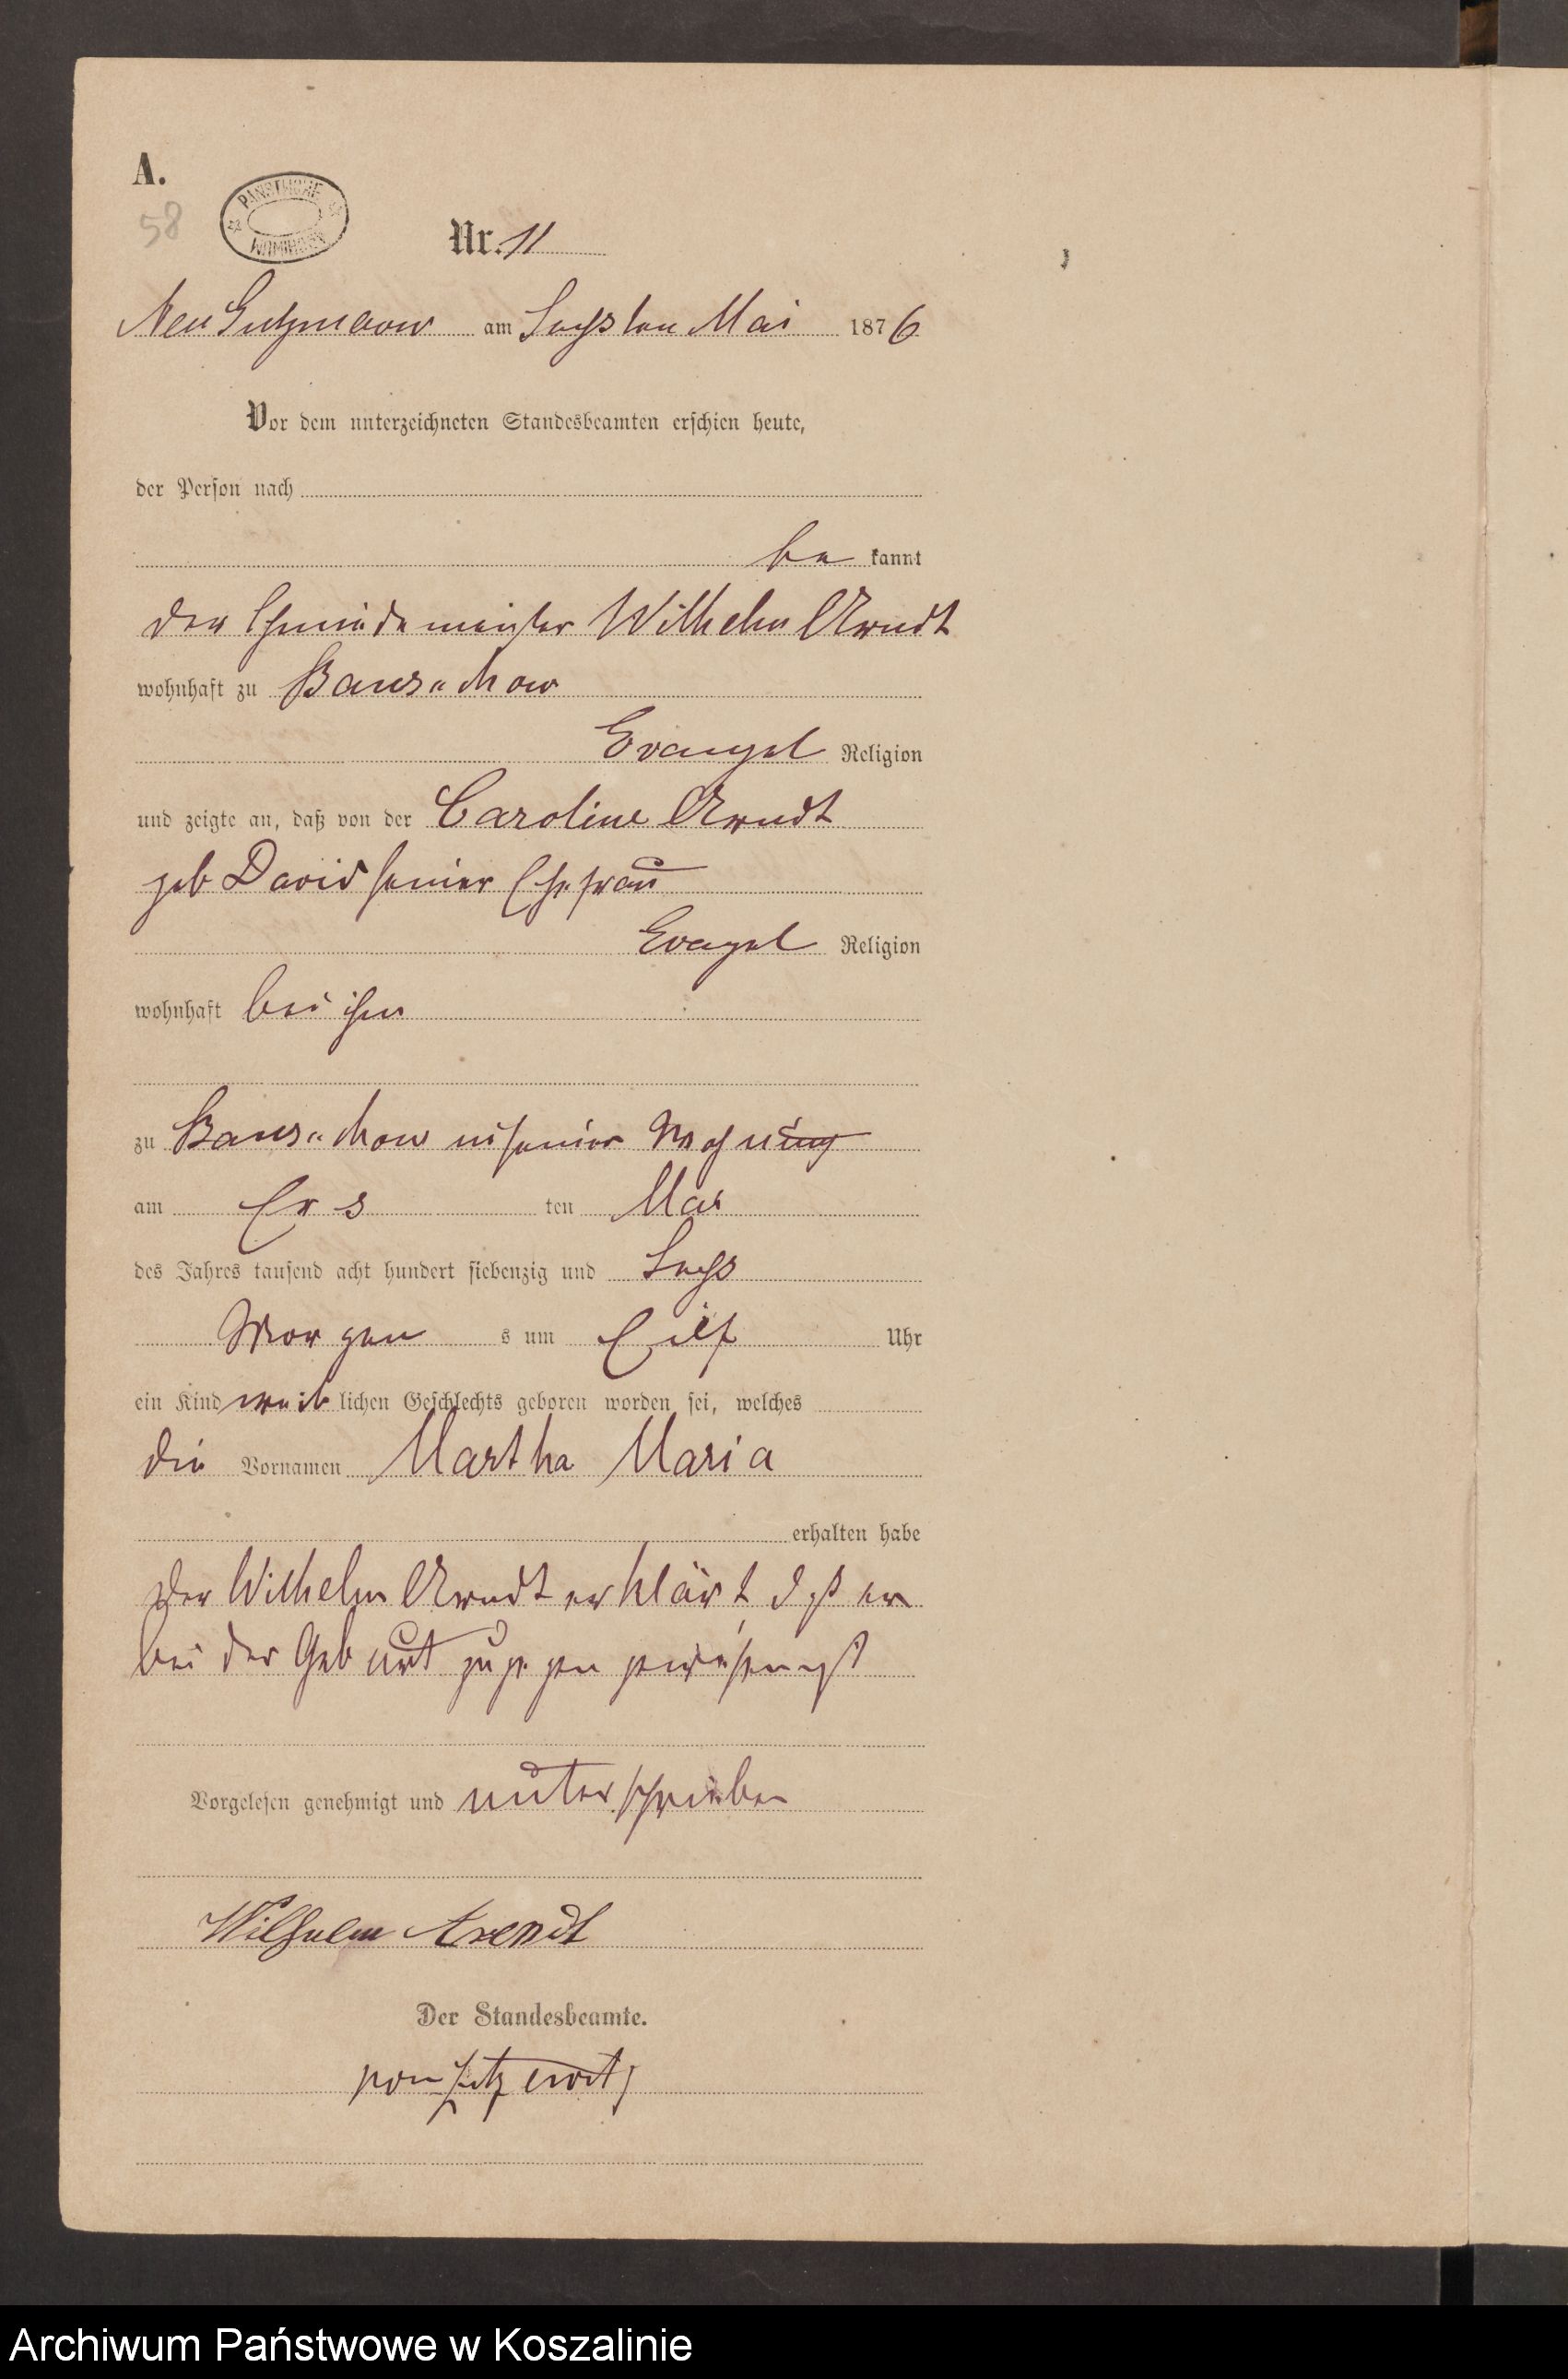 A.
58
PAŃSTWOWE
Nr. 11
Neu Gutzmerow am Sechsten Mai 1876
Vor dem unterzeichneten Standesbeamten erschien heute,
der Person nach
be kannt
der Schmiedemeister Wilhelm Arndt
wohnhaft zu
Evangel Religion
und zeigte an, daß von der Caroline Arndt
geb David seiner Ehefrau
Evagel Religion
wohnhaft bei ihm
zu in seiner Wohnung
am Ers ten Mai
des Jahres tausend acht hundert siebenzig und Sechs
Morgen s um Eilf Uhr
ein Kind weib lichen Geschlechts geboren worden sei, welches
die Vornamen Martha Maria
erhalten habe
Der Wilhelm Arndt erklärt, daß er
bei der Geburt zugegen gewesen ist
Vorgelesen genehmigt und unterschrieben
Wilhelm Arendt
Der Standesbeamte.
von Zitzewitz
Archiwum Państwowe w Koszalinie